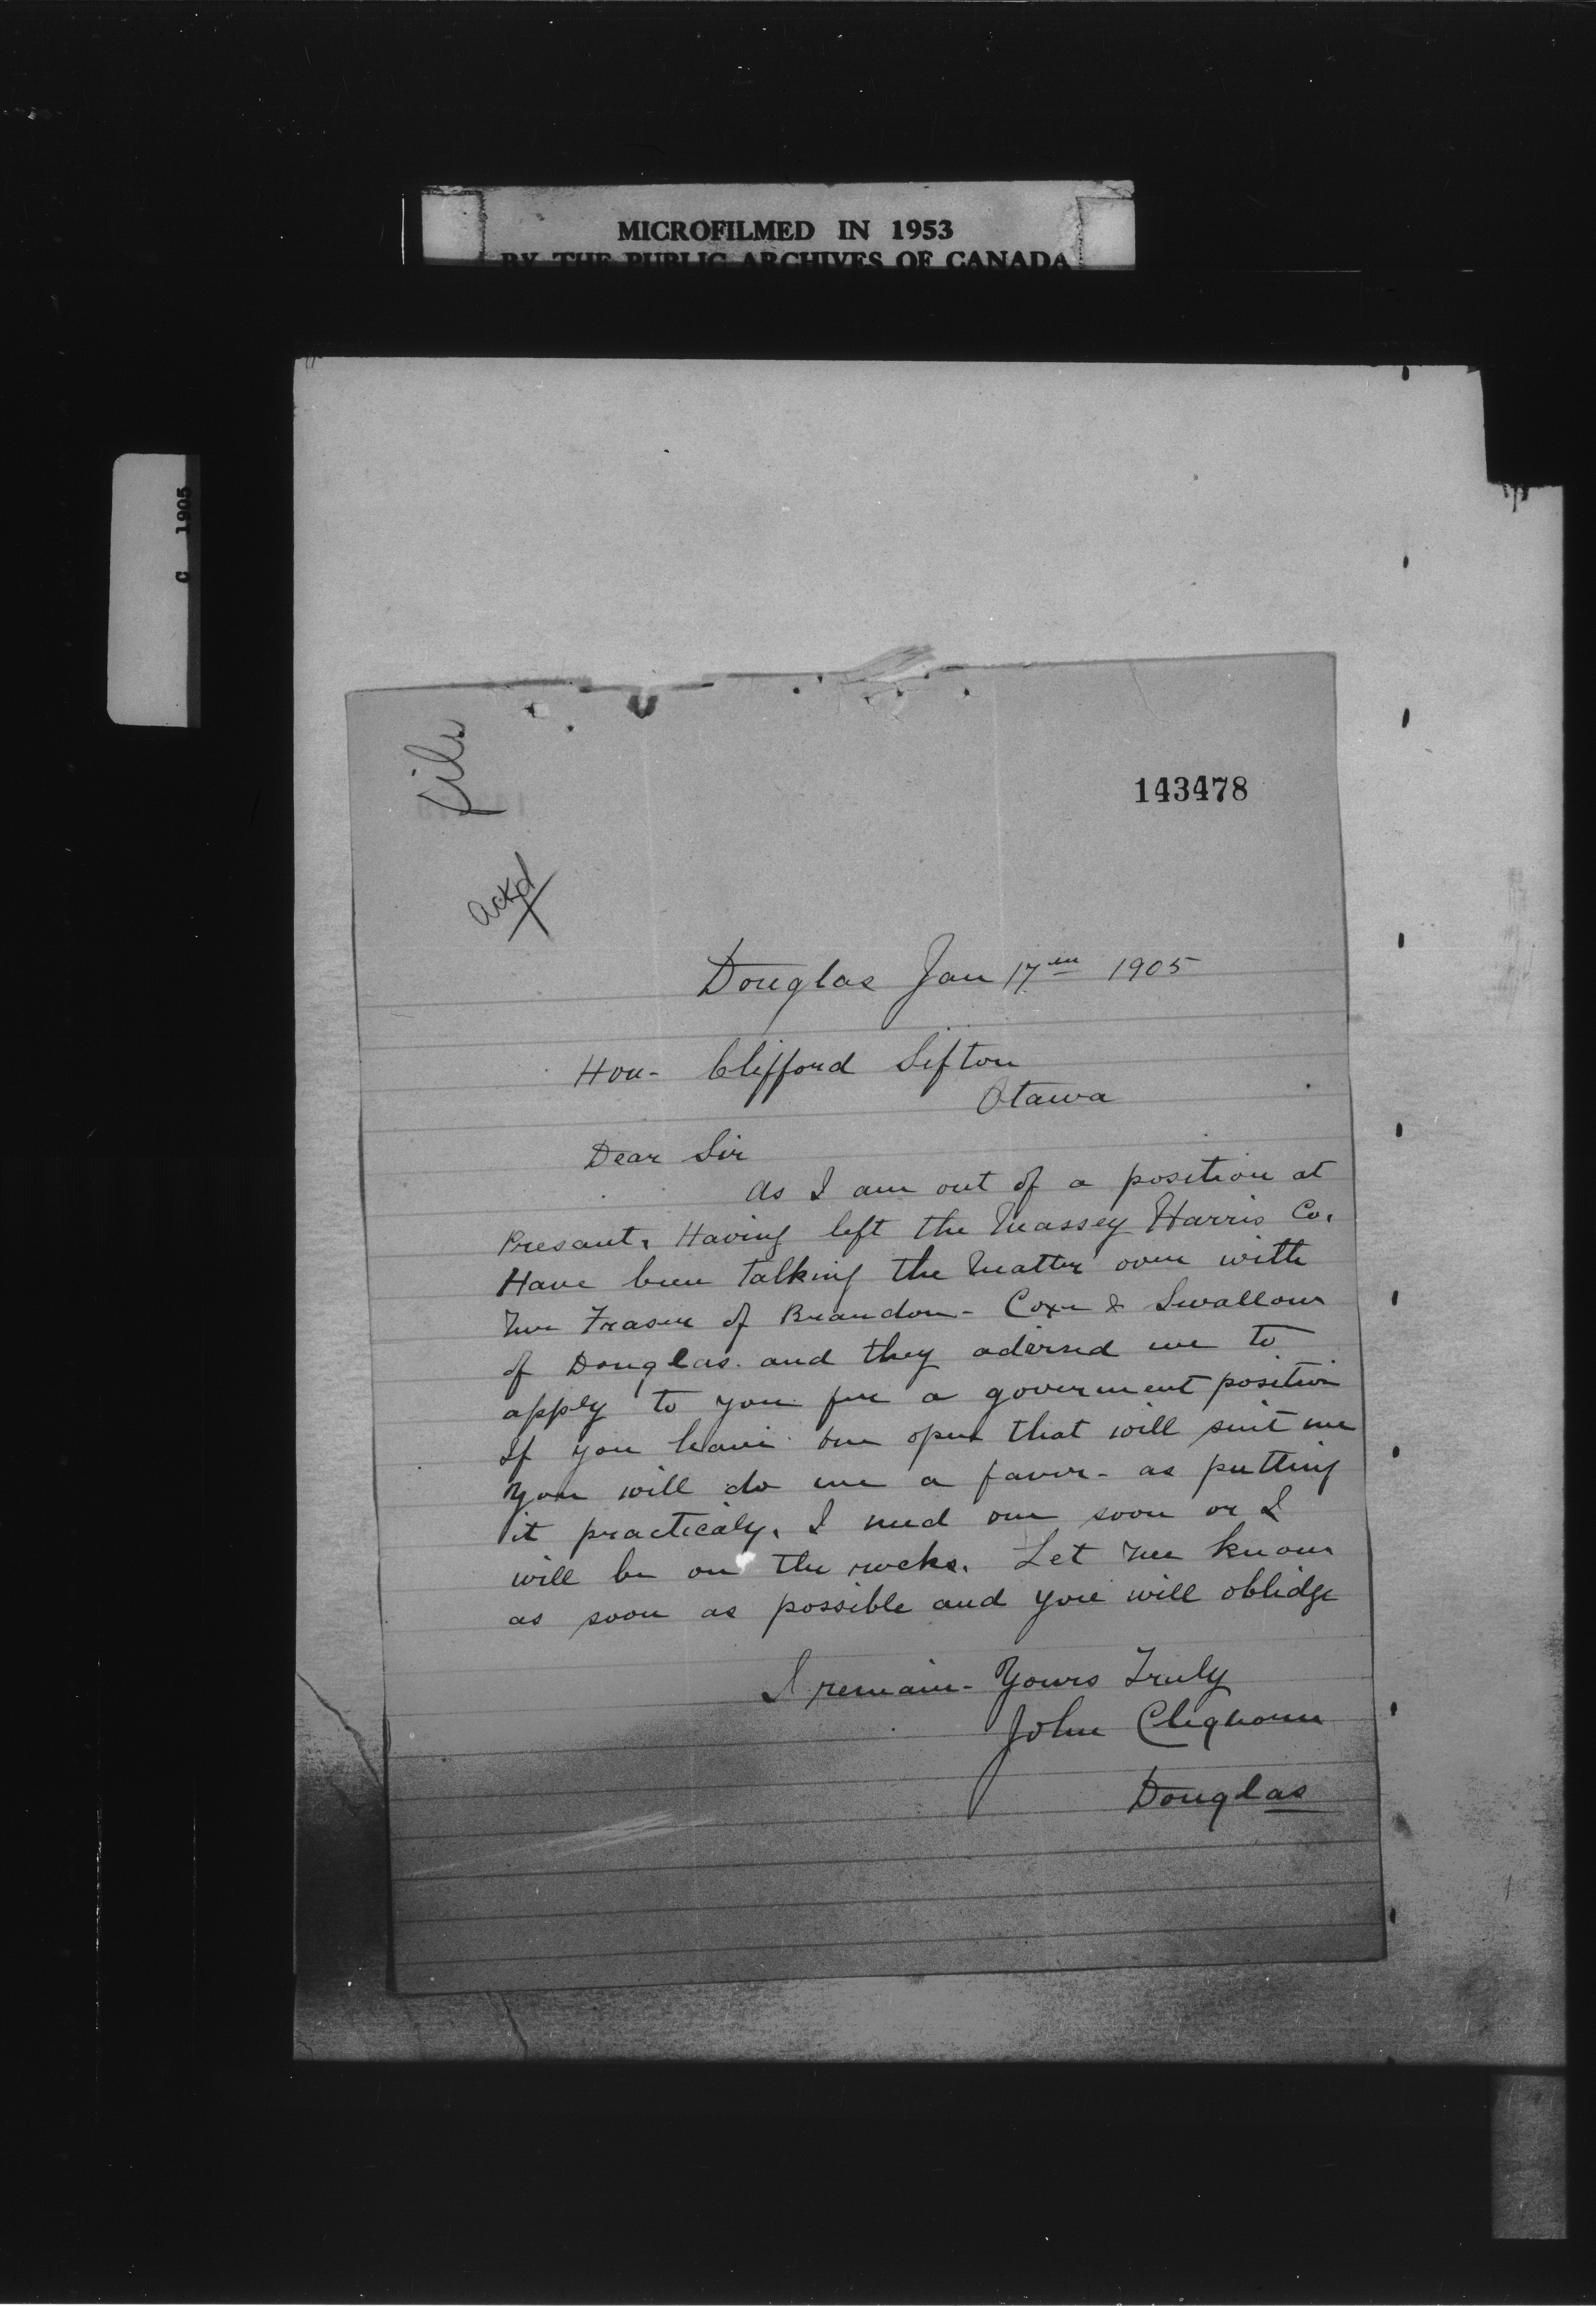 MICROFILMED IN 1953
BY THE PUBLIC ARCHIVES OF CANADA
C 1905
file
143478
ackd
Douglas Jan 17th 1905
Hon- Clifford Sifton
Otawa
Dear Sir
As I am out of a position at
Presant. Having left the Massey Harris Co.
Have been talking the Matter over with
Mr Fraser of Brandon - Coxe & Swallow
of Douglas. and they adviesd me to
apply to you for a goverment position
If you have one open that will suit me
You will do me a favor - as putting
it practicaly. I need one soon or I
will be on the rocks. Let Me know
as soon as possible and you will oblidge
I remain - Yours Truly
John Cleghorn
Douglas